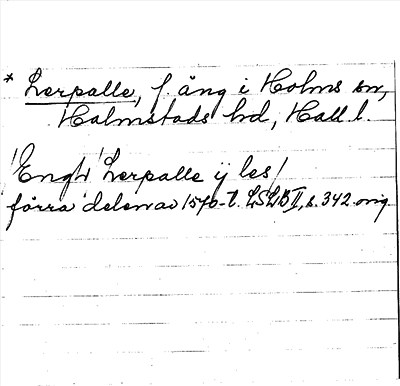 * Lerpalle, f. äng i Holms sn,
Halmstads hd, Hall l.
'Engh' Lerpalle ij les/
förra delen av 1570-t. LSLB II, s. 342 orig